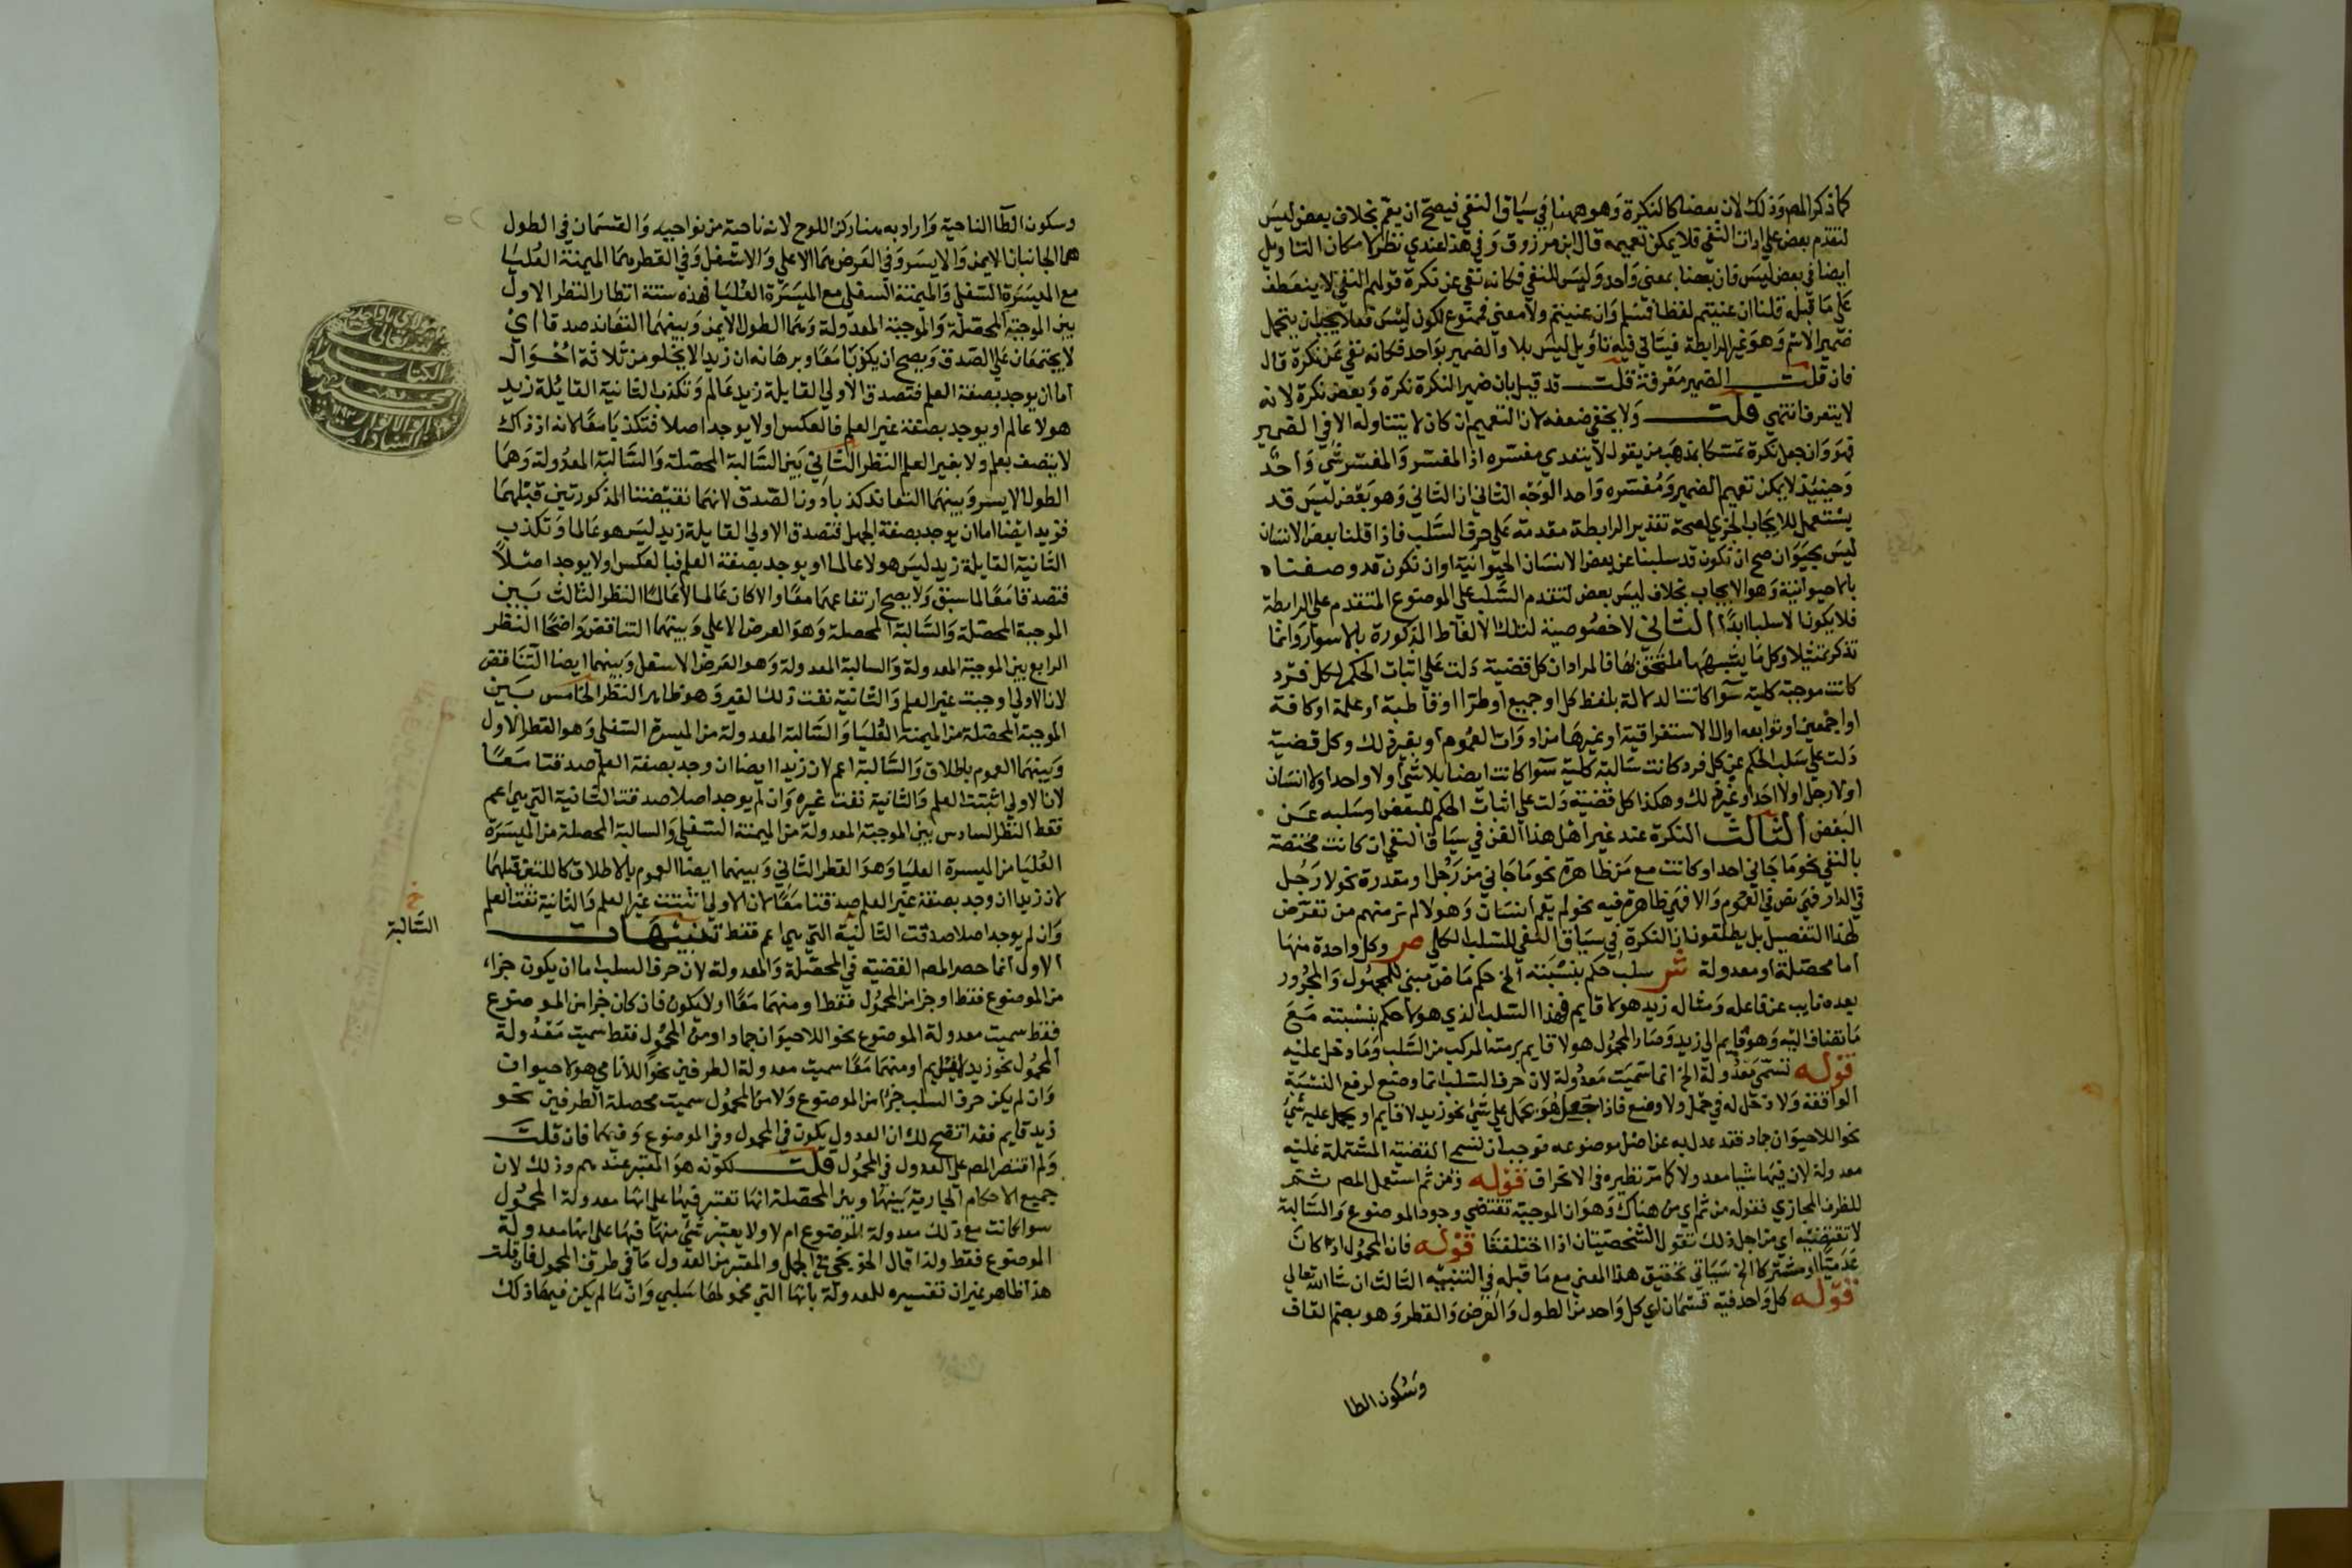 كما ذكر المص وذلك لان بعضا كالنكرة وهو ههنا في سياق النفي فيصح ان يعم بخلاف بعض ليس
لتقدم بعض على اداة النفي فلا يمكن تعميمه قال ابن مرزوق وفي هذا عندي نظر لامكان التاويل
ايضا في بعض ليس فان بعضا بمعنى واحد وليس للنفي فكانه نفي عن نكرة قولهم النفي لا ينعطف
على ما قبله قلنا ان عنيتم لفظا فمسلم وان عنيتم ولا معنى فممنوع لكون ليس فعلا يجب ان يتحمل
ضمير الاسم وهو غير الرابطة فيتاتى فيه تاويل ليس بلا والضمير بواحد فكانه نفي عن نكرة قال
فان قلت الضمير معرفة قلت قد قيل بان ضمير النكرة نكرة وبعض نكرة لانه
لا يتعرف انتهى قلت ولا يخفى ضعفه لان التعميم ان كان لا يتناوله الا في الضمير
فهو وان جعل نكرة تمسكا بمذهب من يقول لا يتعدى مفسره اذ المفسر والمفسر شي واحد
وحينئذ لا يمكن تعميم الضمير ومفسره واحد الوجه الثاني ان الثاني وهو بعض ليس قد
يستعمل للايجاب الجزي لصحة تقدير الرابطة مقدمة على حرف السلب فاذا قلنا بعض الانسان
ليس بحيوان صح ان تكون قد سلبنا عن بعض الانسان الحيوانية وان تكون قد وصفناه
بالاحيوانية وهو الايجاب بخلاف ليس بعض لتقدم السلب على الموضوع المتقدم على الرابطة
فلا يكون الا سلبا ابدا الثاني لا خصوصية لتلك الالفاظ المذكورة بالاسوار وانما
تذكر تمثيلا وكل ما يشبهها ملتحق بها فالمراد ان كل قضية دلت على اثبات الحكم لكل فرد
كانت موجبة كلية سوا كانت الدلالة بلفظ كل او جميع او طرا او قاطبة او عامة او كافة
او اجمعين او توابعه او ال الاستغراقية او غيرها من ادوات العموم او بغير ذلك وكل قضية
دلت على سلب الحكم عن كل فرد كانت سالبة كلية سوا كانت ايضا بلا شي او لا واحد او لا انسان
او لا رجل او لا احد او غير ذلك وهكذا كل قضية دلت على اثبات الحكم للبعض او سلبه عن
البعض الثالث النكرة عند غير اهل هذا الفن في سياق النفي ان كانت مختصة
بالنفي نحو ما جاني احد او كانت مع من ظاهرة نحو ما جاني من رجل او مقدرة نحو لا رجل
في الدار فهي نص في العموم والا فهي ظاهرة فيه نحو لم يقم انسان وهولا لم تر منهم من تعرض
لهذا التفصيل بل يطلقون ان النكرة في سياق النفي للسلب الكلي ص وكل واحدة منها
اما محصلة او معدولة ش سلب حكم بنسبته الخ حكم ماض مبني للمجهول والمجرور
بعده نايب عن فاعله ومثاله زيد هو لا قايم فهذا السلب الذي هو لا حكم بنسبته مع
ما تضاف اليه وهو قايم الى زيد وصار المحمول هو لا قايم برمته المركب من السلب وما دخل عليه
قوله تسمى معدولة الخ انما سميت معدولة لان حرف السلب انما وضع لرفع النسبة
الواقعة ولا دخل له في حمل ولا وضع فاذا جعل هو يحمل على شي نحو زيد لا قايم او يحمل عليه شي
نحو اللاحيوان جماد فقد عدل به عن اصل موضوعه فوجب ان تسمى القضية المشتملة عليه
معدولة لان فيها شيا معدولا كما مر نظيره في الانحراف قوله ومن ثم استعمل المص ثم
للظرف المجازي فقوله من ثم اي من هناك وهو ان الموجبة تقتضي وجود الموضوع والسالبة
لا تقتضيه اي من اجل ذلك تقول الشخصيتان اذا اختلفتا قوله فان المحمول اذا كان
عدميا او مشتركا الخ سياتي تحقيق هذا المعنى مع ما قبله في التنبيه الثالث ان شا الله تعالى
قوله كل واحد فيه قسمان اي كل واحد من الطول والعرض والقطر وهو بضم القاف
وسكون الطا
وسكون الطا الناحية واراد به هنا ركن اللوح لانه ناحية من نواحيه والقسمان في الطول
هما الجانبان الايمن والايسر وفي العرض هما الاعلى والاسفل وفي القطر هما الميمنة العليا
مع الميسرة السفلى والميمنة السفلى مع الميسرة العليا فهذه ستة انظار النظر الاول
بين الموجبة المحصلة والموجبة المعدولة وهما الطول الايمن وبينهما التعاند صدقا اي
لا يجتمعان على الصدق ويصح ان يكذبا معا وبرهانه ان زيدا لا يخلو من ثلاثة احوال
اما ان يوجد بصفة العلم فتصدق الاولى القايلة زيد عالم وتكذب الثانية القايلة زيد
هو لا عالم او يوجد بصفة غير العلم فالعكس او لا يوجد اصلا فتكذبا معا لانه اذ ذاك
لا يتصف بعلم ولا بغير العلم النظر الثاني بين السالبة المحصلة والسالبة المعدولة وهما
الطول الايسر وبينهما التعاند كذبا دون الصدق لانهما نقيضتا المذكورتين قبلهما
فزيد ايضا اما ان يوجد بصفة الجهل فتصدق الاولى القايلة زيد ليس هو عالما وتكذب
الثانية القايلة زيد ليس هو لا عالما او يوجد بصفة العلم فبالعكس او لا يوجد اصلا
فتصدقا معا لما سبق ولا يصح ارتفاعهما معا والا كان عالما لا عالما النظر الثالث بين
الموجبة المحصلة والسالبة المحصلة وهو العرض الاعلى وبينهما التناقض واضحا النظر
الرابع بين الموجبة المعدولة والسالبة المعدولة وهو العرض الاسفل وبينهما ايضا التناقض
لان الاولى اوجبت غير العلم والثانية نفت ذلك الغير وهو ظاهر النظر الخامس بين
الموجبة المحصلة من الميمنة العليا والسالبة المعدولة من الميسرة السفلى وهو القطر الاول
وبينهما العموم باطلاق والسالبة اعم لان زيدا ايضا ان وجد بصفة العلم صدقتا معا
لان الاولى اثبتت العلم والثانية نفت غيره وان لم يوجد اصلا صدقت الثانية التي هي اعم
فقط النظر السادس بين الموجبة المعدولة من الميمنة السفلى والسالبة المحصلة من الميسرة
العليا من الميسرة العليا وهو القطر الثاني وبينهما ايضا العموم بالاطلاق كاللتين قبلهما
لان زيدا ان وجد بصفة غير العلم صدقتا معا لان الاولى اثبتت غير العلم والثانية نفت العلم
وان لم يوجد اصلا صدقت الثانية التي هي اعم فقط تنبيهات
السالبة
الاول انما حصر المص القضية في المحصلة والمعدولة لان حرف السلب اما ان يكون جزا
من الموضوع فقط او جزا من المحمول فقط او منهما معا او لا يكون فان كان جزا من الموضوع
فقط سميت معدولة الموضوع نحو اللاحيوان جماد او من المحمول فقط سميت معدولة
المحمول نحو زيد لا قايم او منهما معا سميت معدولة الطرفين نحو اللانامي هو لا حيوان
وان لم يكن حرف السلب جزا من الموضوع ولا من المحمول سميت محصلة الطرفين نحو
زيد قايم فقد اتضح لك ان العدول يكون في المحمول وفي الموضوع وفيهما فان قلت
ولم اقتصر المص على العدول في المحمول قلت لكونه هو المعتبر عندهم وذلك لان
جميع الاحكام الجارية بينها وبين المحصلة انها تعتبر فيها على انها معدولة المحمول
سوا كانت مع ذلك معدولة الموضوع ام لا ولا يعتبر شي منها فيها على انها معدولة
الموضوع فقط ولذا قال الخونجي في الجمل والمعتبر من العدول ما في طرف المحمول فان قلت
هذا ظاهر غير ان تفسيره للمعدولة بانها التي محمولها سلبي وان سالم يكن فيها ذلك